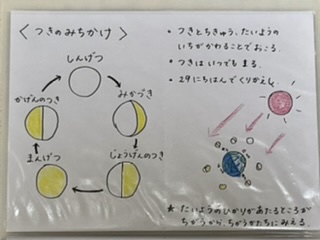 〈つきのみちかけ〉
しんげつ
みかづき
じょうげんのつき
まんげつ
かげんのつき
・つきとちきゅう、たいようの
いちがかわることでおこる.
・つきはいつでもまる.
・29にちはんでくりかえし
★たいようのひかりがあたるところが
ちがうから、ちがうかたちにみえる.